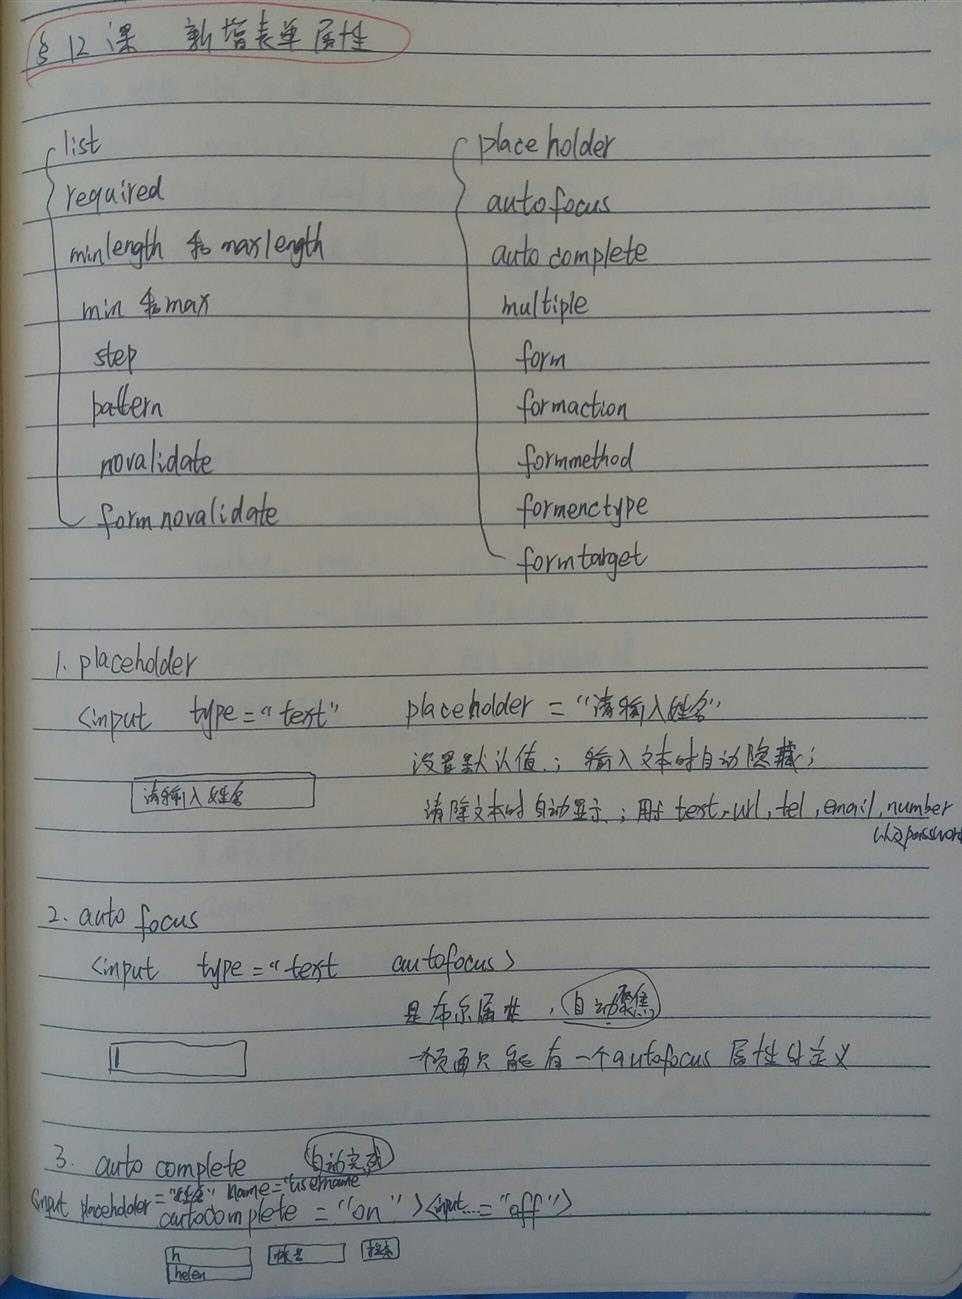 §12课 新增表单属性
list
required
minlength 和 maxlength
min 和 max
step
pattern
novalidate
formnovalidate
placeholder
autofocus
autocomplete
multiple
form
formaction
formmethod
formenctype
formtarget
1. placeholder
<input type="text" placeholder="请输入姓名"
设置默认值；输入文本时自动隐藏；
请输入姓名
清除文本时自动显示；用于text,url,tel,email,number
以及password
2. autofocus
<input type="text autofocus>
是布尔属性，自动聚焦
一个页面只能有一个autofocus属性的定义
3. autocomplete 自动完成
<input placeholder="姓名" name="username"
autocomplete="on"><input...="off">
h
helen